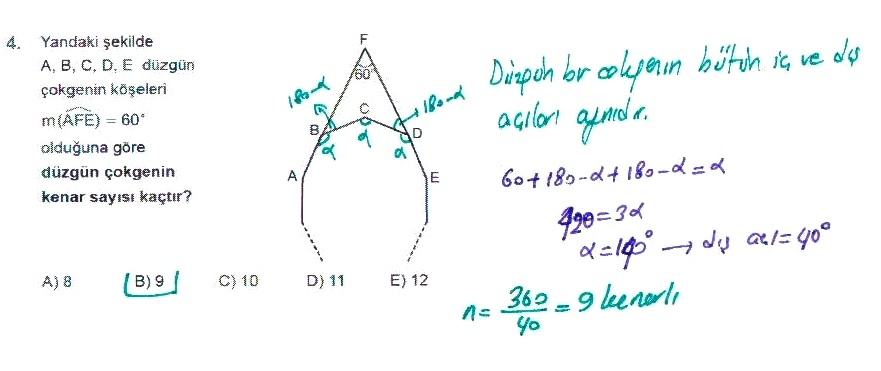 4. Yandaki şekilde
A, B, C, D, E düzgün
çokgenin köşeleri
m(AFE) = 60°
olduğuna göre
düzgün çokgenin
kenar sayısı kaçtır?
F
60°
180-α
180-α
C
B
D
α
α
α
A
E
A) 8 B) 9 C) 10 D) 11 E) 12
Düzgün bir çokgenin bütün iç ve dış
açıları aynıdır.
60+180-α+180-α=α
420=3α
α=140° → dış açı=40°
n= 360/40 = 9 kenarlı